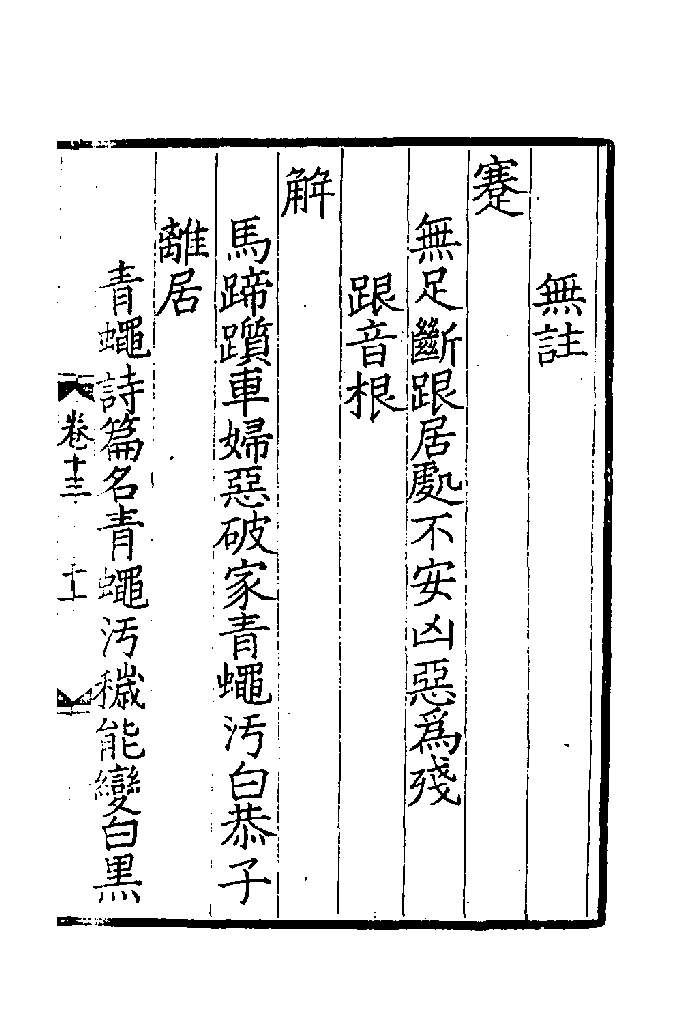 無註
蹇
無足斷跟居處不安凶惡為殘
跟音根
解
馬蹄躓車婦惡破家青蠅汚白恭子
離居
青蠅詩篇名青蠅汚穢能變白黑
卷十三